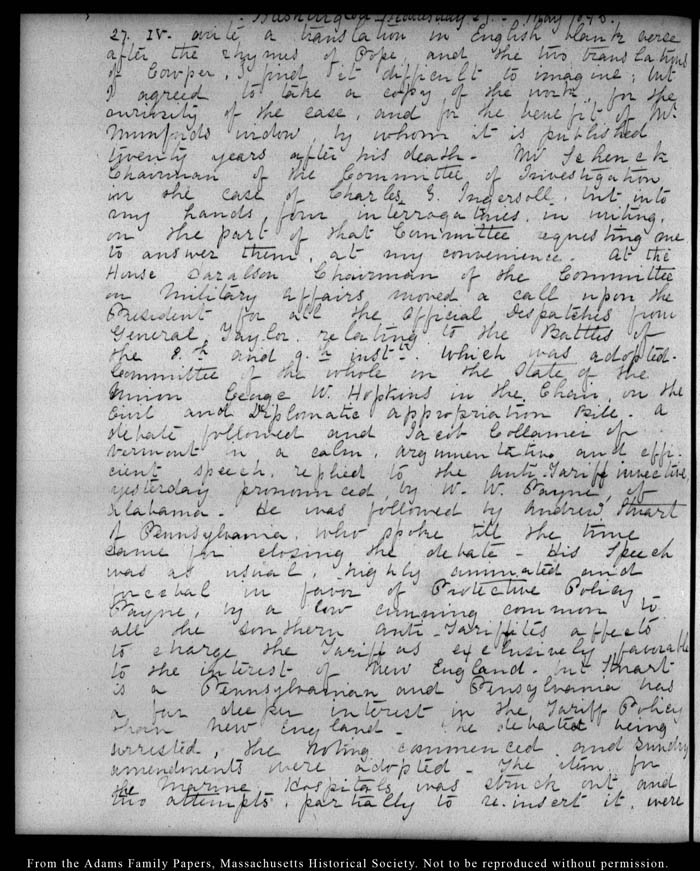 Washington Wednesday 27. May 1846.
27. IV. write a translation in English blank verse
after the rhymes of Pope, and the two translations
of Cowper, I find it difficult to imagine; but
I agreed to take a copy of the work, for the
curiosity of the case, and for the benefit of Mr.
Munfords widow, by whom it is published
twenty years after his death - Mr Schenck
Chairman of the Committee of Investigation
in the case of Charles J. Ingersoll, put into
my hands, four interrogatories, in writing,
on the part of that Committee requesting me
to answer them, at my convenience. At the
House Haralson Chairman of the Committee
on Military affairs moved a call upon the
President for all the Official Despatches from
General Taylor, relating to the Battles of
the 8.th and 9.th inst.t which was adopted.
Committee of the whole on the State of the
Union George W. Hopkins in the Chair, on the
Civil and Diplomatic appropriation Bill. a
debate followed and Jacob Collamer of
Vermont in a calm, argumentative and effi-
cient speech, replied to the anti-Tariff invective,
yesterday pronounced by W. W. Payne, of
Alabama - He was followed by Andrew Stuart
of Pennsylvania, who spoke till the time
came for closing the debate - His Speech
was as usual, highly animated and
forcebal in favor of Protective Policy
Payne, by a low cunning common to
all the southern anti-Tariffites affects
to charge the Tariff as exclusively favorable
to the interest of New England - but Stuart
is a Pennsylvanian and Pensylvania has
a far deeper interest in the Tariff Policy
than New England - The debates being
arrested, the voting commenced and sundry
amendments were adopted - The item for
the Marine Hospitals was struck out and
two attempts, partially to re-insert it, were
From the Adams Family Papers, Massachusetts Historical Society. Not to be reproduced without permission.